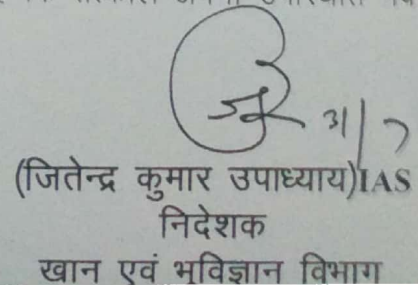 31/7
(जितेन्द्र कुमार उपाध्याय)IAS
निदेशक
खान एवं भूविज्ञान विभाग